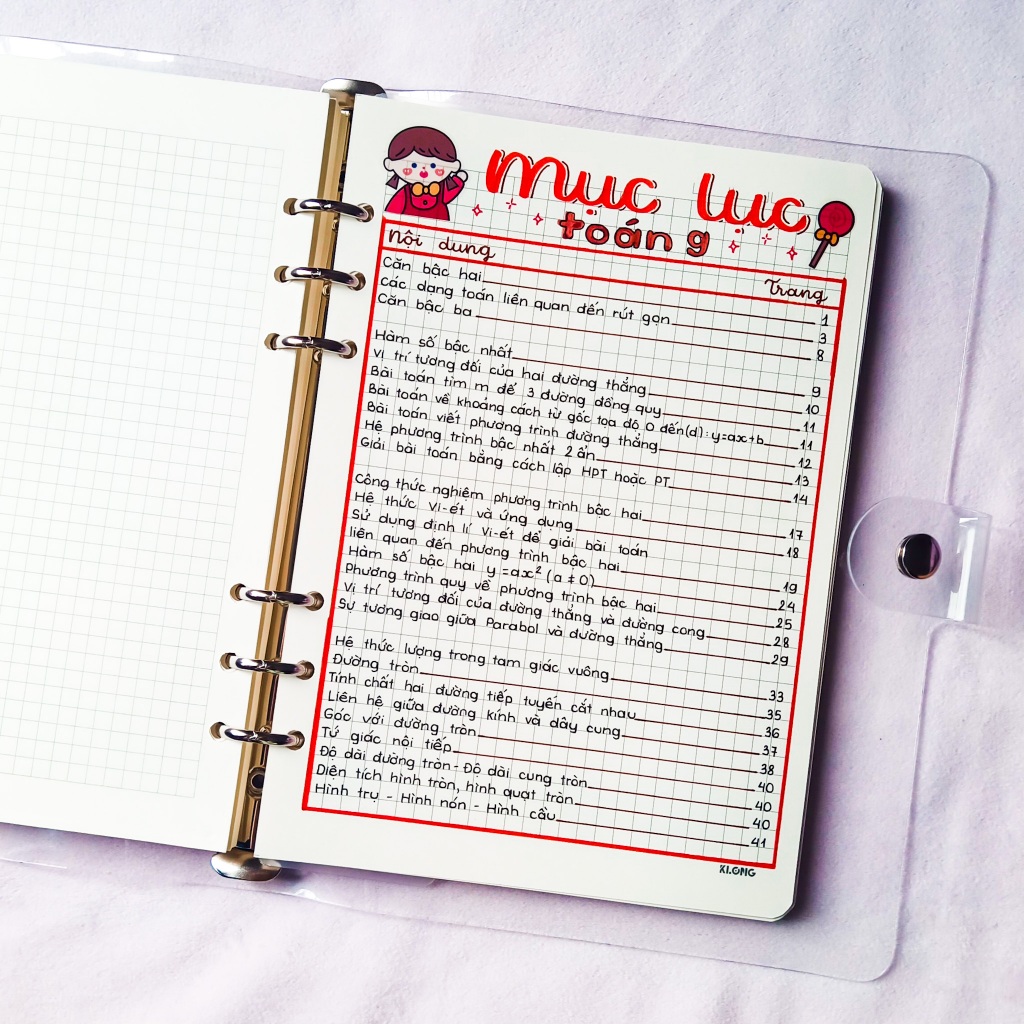 mục lục
toán 9
Nội dung Trang
Căn bậc hai 1
Các dạng toán liên quan đến rút gọn 3
Căn bậc ba 8
Hàm số bậc nhất 9
Vị trí tương đối của hai đường thẳng 10
Bài toán tìm m để 3 đường đồng quy 11
Bài toán về khoảng cách từ gốc tọa độ O đến (d): y=ax+b 11
Bài toán viết phương trình đường thẳng 12
Hệ phương trình bậc nhất 2 ẩn 13
Giải bài toán bằng cách lập HPT hoặc PT 14
Công thức nghiệm phương trình bậc hai 17
Hệ thức Vi-ét và ứng dụng 18
Sử dụng định lí Vi-ét để giải bài toán
liên quan đến phương trình bậc hai 19
Hàm số bậc hai y = ax² (a ≠ 0) 24
Phương trình quy về phương trình bậc hai 25
Vị trí tương đối của đường thẳng và đường cong 28
Sự tương giao giữa Parabol và đường thẳng 29
Hệ thức lượng trong tam giác vuông 33
Đường tròn 35
Tính chất hai đường tiếp tuyến cắt nhau 36
Liên hệ giữa đường kính và dây cung 37
Góc với đường tròn 38
Tứ giác nội tiếp 40
Độ dài đường tròn - Độ dài cung tròn 40
Diện tích hình tròn, hình quạt tròn 40
Hình trụ - Hình nón - Hình cầu 41
KLONG